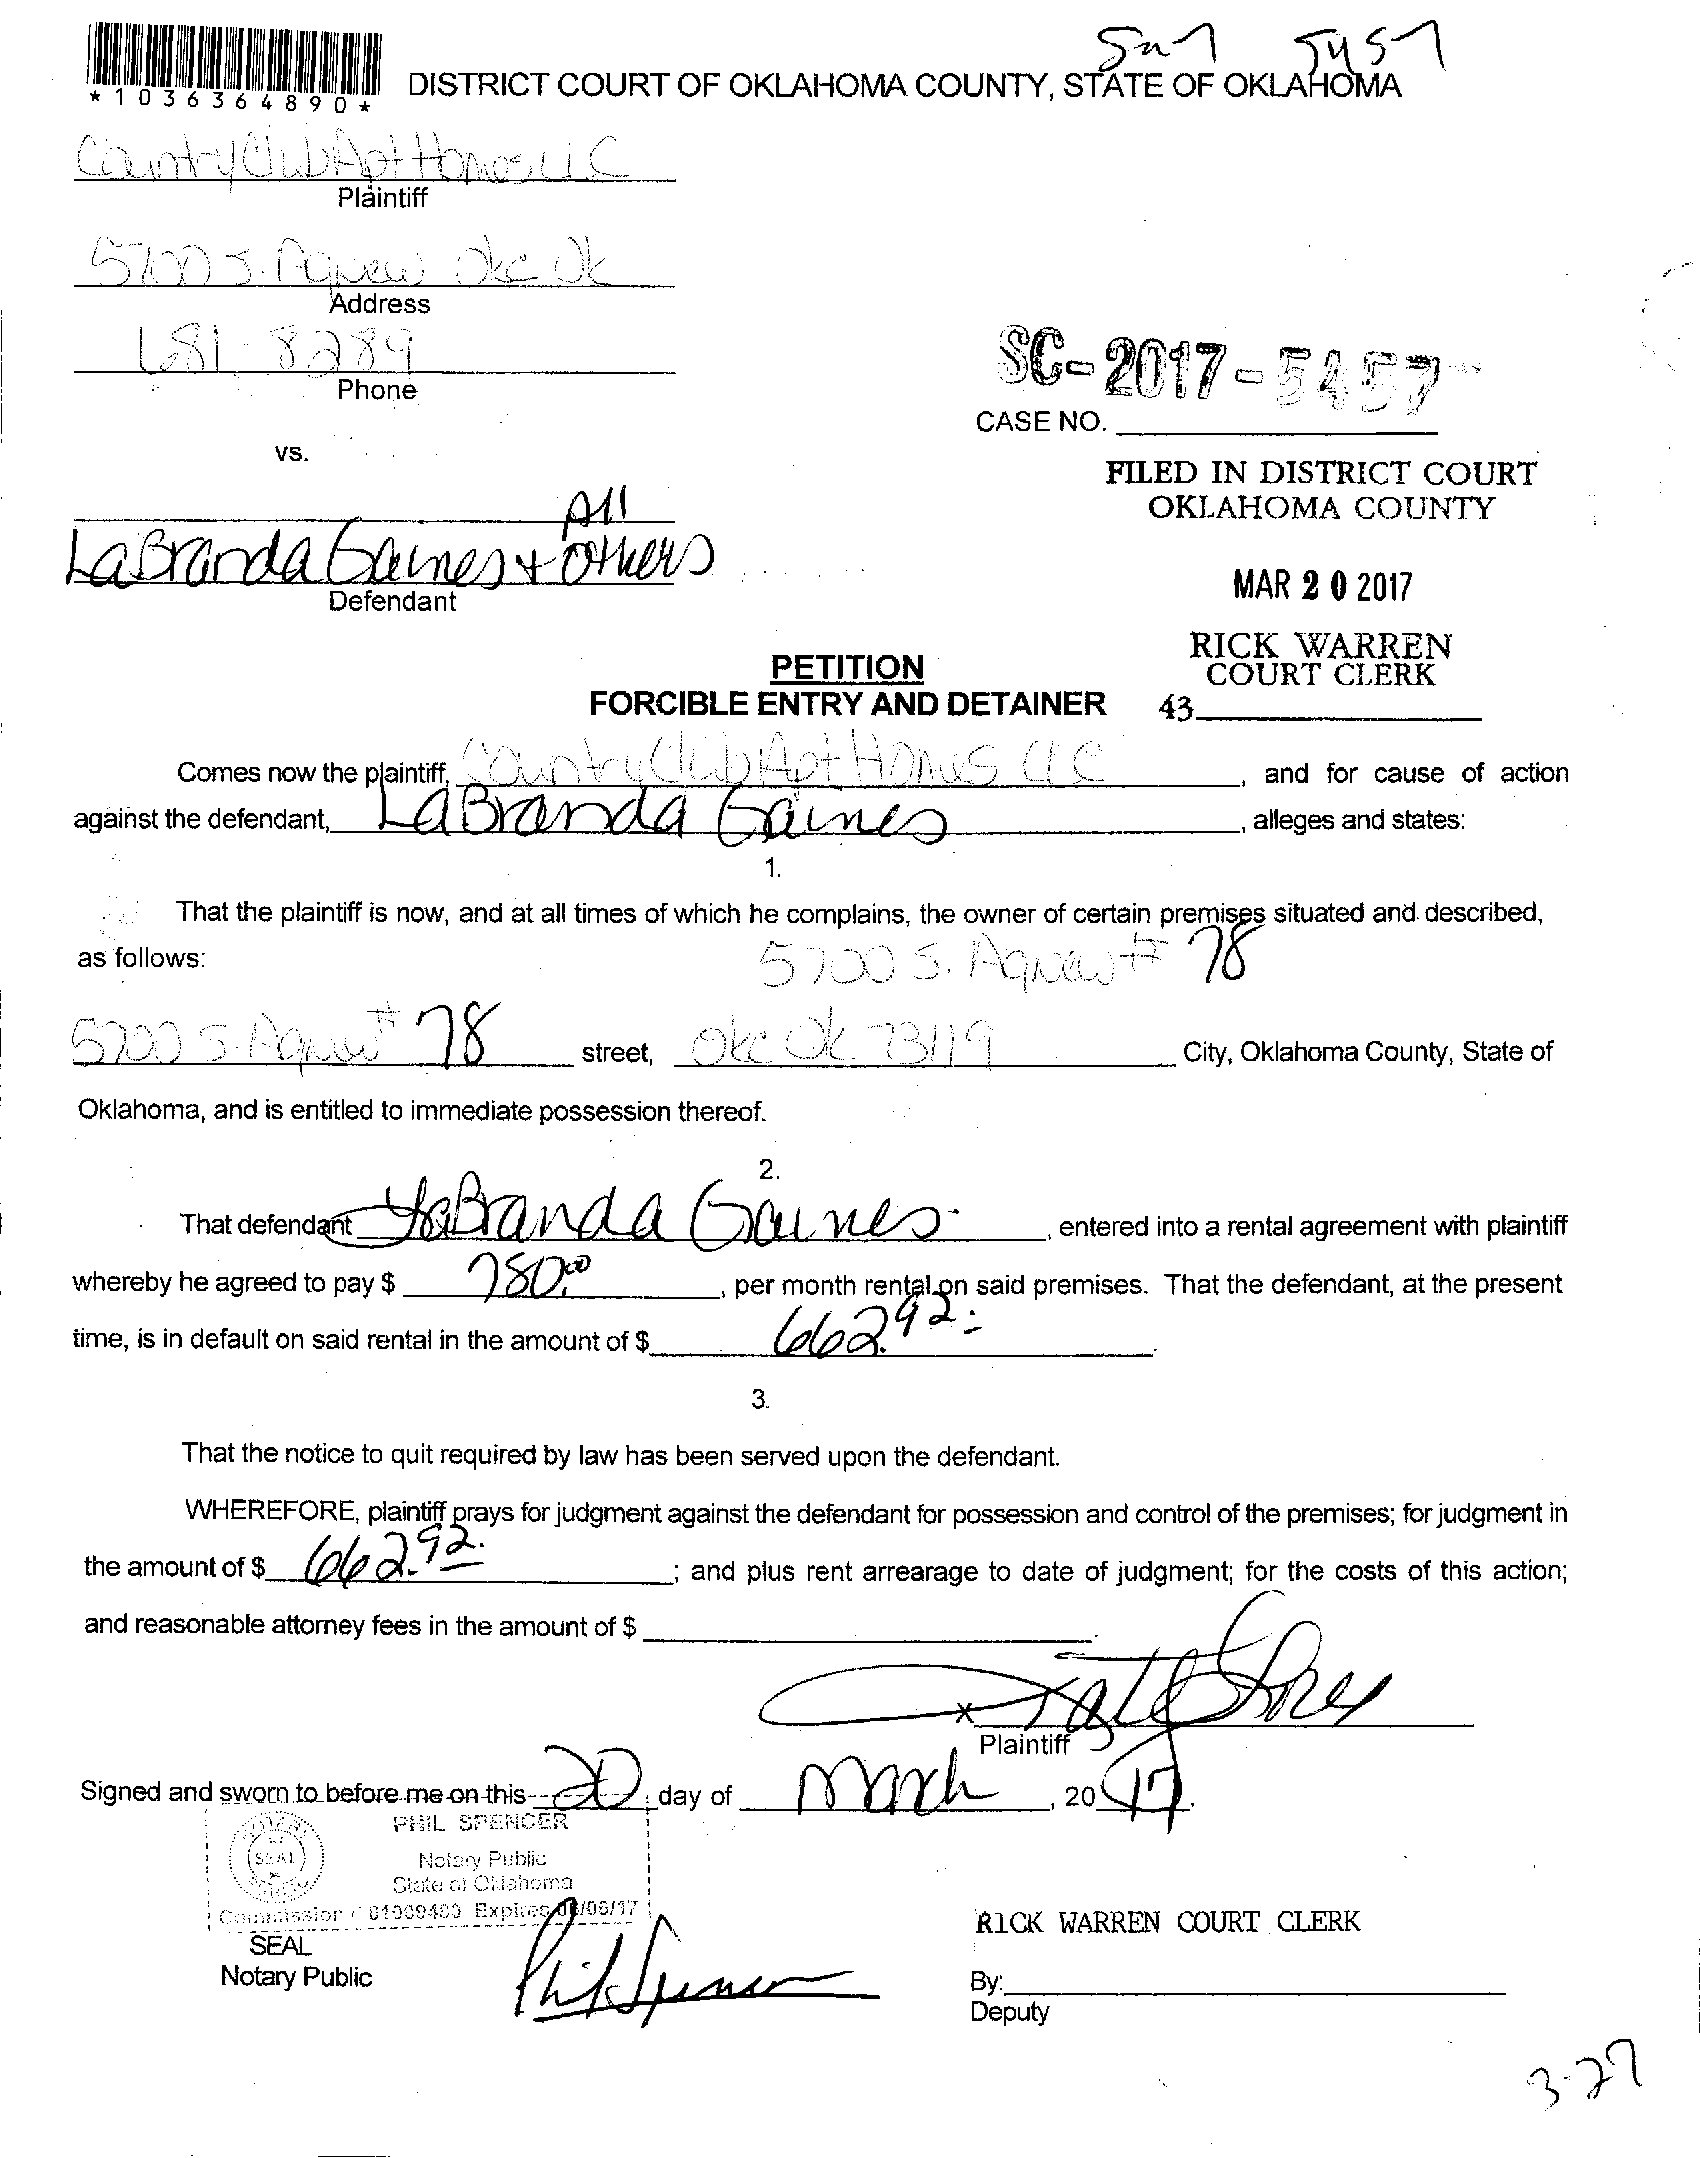 *1036364890*
DISTRICT COURT OF OKLAHOMA COUNTY, STATE OF OKLAHOMA
Country Club Apt Homes LLC
Plaintiff
5700 S. Agnew Okc Ok
Address
681-8289
Phone
SC-2017-5457
CASE NO.
vs.
FILED IN DISTRICT COURT
OKLAHOMA COUNTY
LaBranda Gaines + All Others
Defendant
MAR 20 2017
RICK WARREN
COURT CLERK
43
PETITION
FORCIBLE ENTRY AND DETAINER
Comes now the plaintiff, Country Club Apt Homes LLC, and for cause of action
against the defendant, LaBranda Gaines, alleges and states:
1.
That the plaintiff is now, and at all times of which he complains, the owner of certain premises situated and described,
as follows: 5700 S. Agnew # 78
5700 S. Agnew # 78 street, Okc Ok 73119 City, Oklahoma County, State of
Oklahoma, and is entitled to immediate possession thereof.
2.
That defendant LaBranda Gaines, entered into a rental agreement with plaintiff
whereby he agreed to pay $ 780.00, per month rental on said premises. That the defendant, at the present
time, is in default on said rental in the amount of $ 662.92.
3.
That the notice to quit required by law has been served upon the defendant.
WHEREFORE, plaintiff prays for judgment against the defendant for possession and control of the premises; for judgment in
the amount of $ 662.92; and plus rent arrearage to date of judgment; for the costs of this action;
and reasonable attorney fees in the amount of $
x
Plaintiff
Signed and sworn to before me on this 20 day of March, 2017.
PHIL SPENCER
SEAL
Notary Public
State of Oklahoma
Commission # 01009480 Expires /06/17
SEAL
Notary Public
Phil Spencer
RICK WARREN COURT CLERK
By:
Deputy
3-27